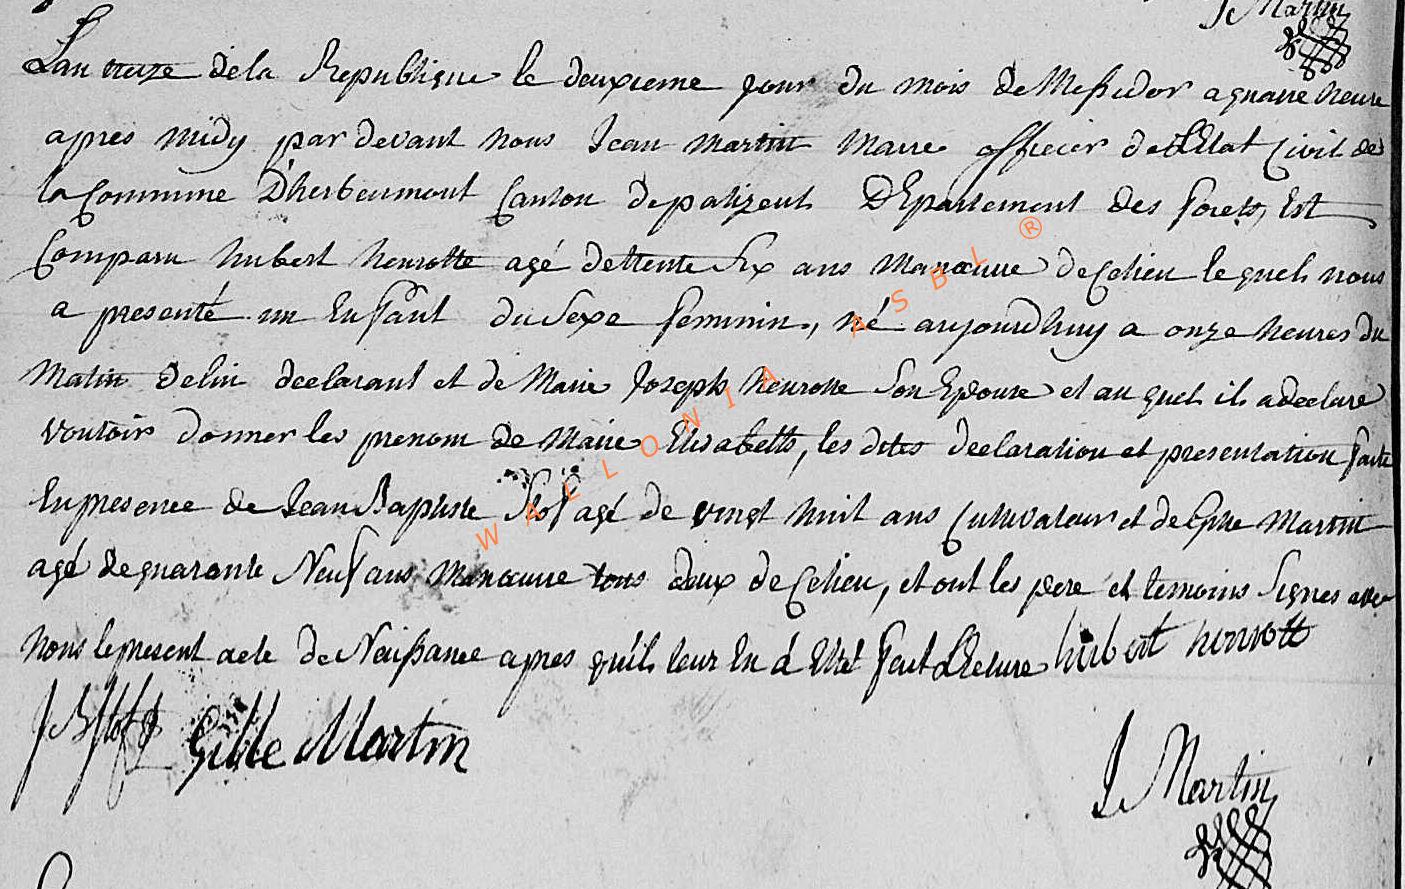 J Martin
L'an treize de la Republique le deuxieme jour du mois de Messidor a quatre heure
apres midy par devant nous Jean Martin Maire officier de L'Etat Civil de
la Commune D'herbeumont Canton de palizeul DEpartement des forets, Est
Comparu hubert henrotte agé de trente Six ans Manœuvre de Ce lieu le quel nous
a presenté un Enfant du Sexe feminin, né aujourdhuy a onze heures du
Matin de lui declarant et de Marie Joseph henrotte Son Epouse et au quel il a declaré
vouloir donner les prenom de Marie Elisabeth, les dites declaration et presentation faite
En presence de Jean Baptiste agé de vingt huit ans Cultivateur et de Martin
agé de quarante Neuf ans Manœuvre tous deux de Ce lieu, et ont les pere et temoins Signes avec
Nous le present acte de Naissance apres quil leur En á Eté fait Lecture hubert henrott
Gille Martin
J Martin
WALLONIA ASBL ®